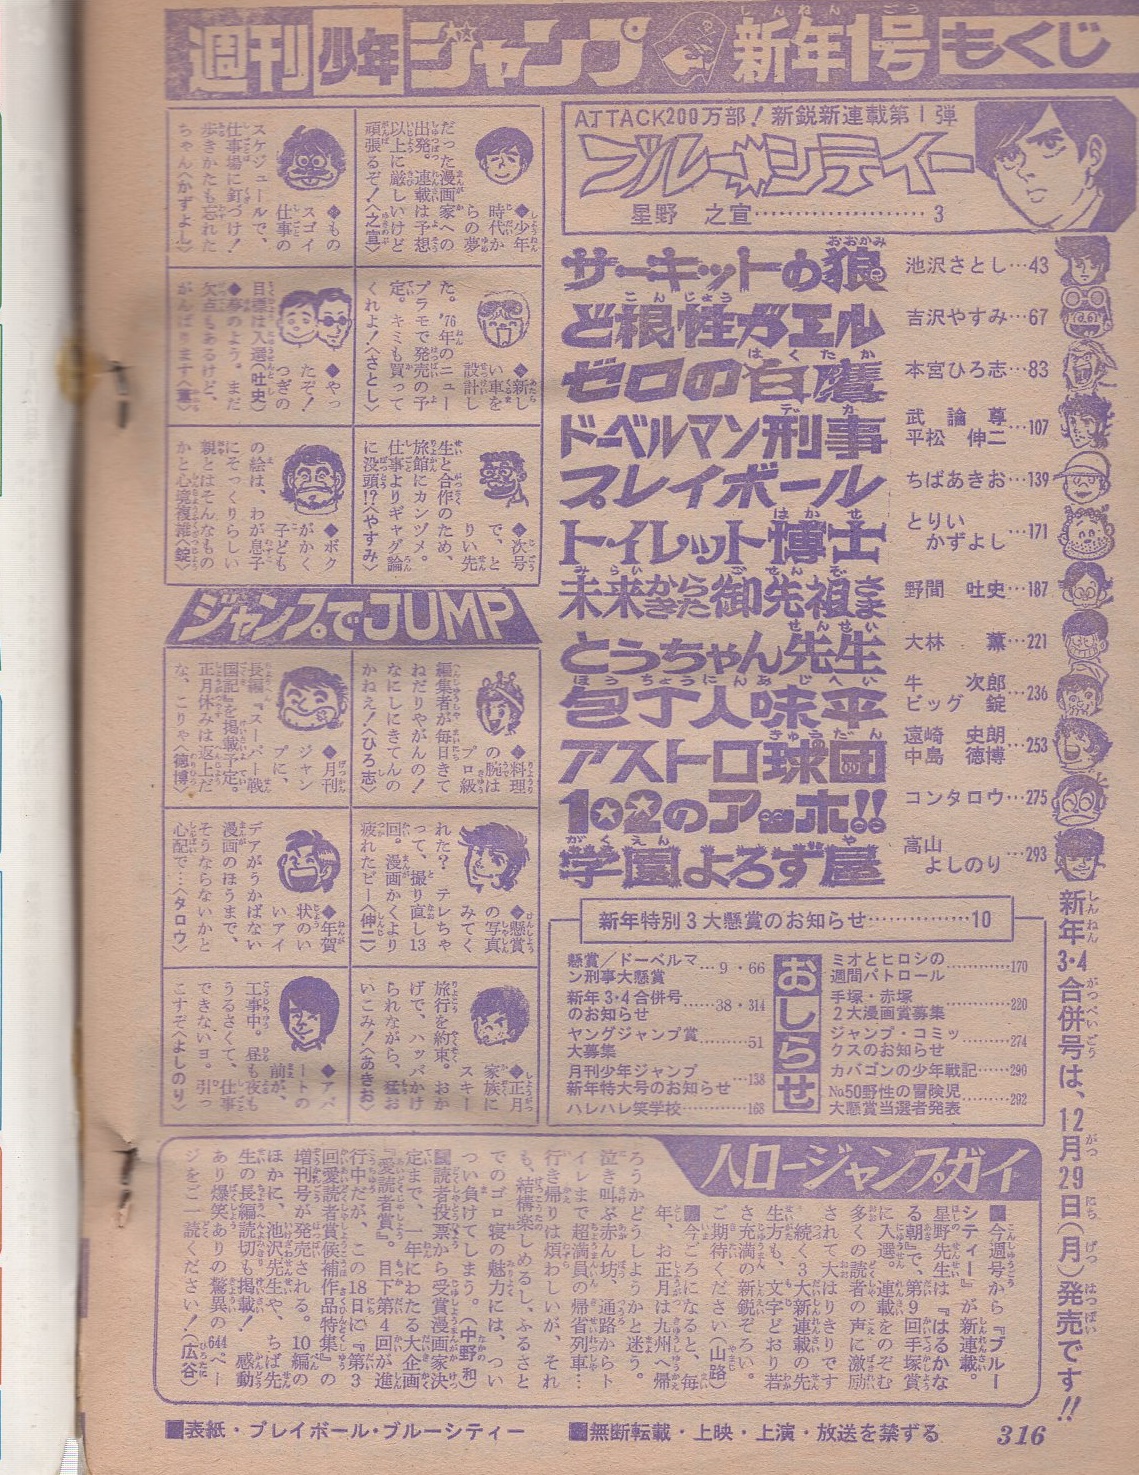 週刊少年ジャンプ 新年1号 もくじ
ATTACK200万部! 新鋭新連載第1弾
ブルーシティー
星野 之宣…3
サーキットの狼 池沢さとし…43
ど根性ガエル 吉沢やすみ…67
ゼロの白鷹 本宮ひろ志…83
ドーベルマン刑事 武論尊 平松 伸二…107
プレイボール ちばあきお…139
トイレット博士 とりいかずよし…171
未来からきた御先祖さま 野間 吐史…187
とうちゃん先生 大林 薫…221
包丁人味平 牛 次郎 ビッグ 錠…236
アストロ球団 遠崎 史朗 中島 徳博…253
1・2のアッホ!! コンタロウ…275
学園よろず屋 高山よしのり…293
新年特別3大懸賞のお知らせ…10
おしらせ
懸賞/ドーベルマン刑事大懸賞…9・66
新年3・4合併号のお知らせ…38・314
ヤングジャンプ賞大募集…51
月刊少年ジャンプ新年特大号のお知らせ…138
ハレハレ笑学校…168
ミオとヒロシの週間パトロール…170
手塚・赤塚2大漫画賞募集…220
ジャンプ・コミックスのお知らせ…274
カバゴンの少年戦記…290
No.50野性の冒険児大懸賞当選者発表…292
新年3・4合併号は、12月29日(月)発売です!!
◆少年時代からの夢だった漫画家への出発。連載は予想以上に厳しいけど頑張るぞ!〈之宣〉
◆ものスゴイ仕事のスケジュールで、仕事場に釘づけ!歩きかたも忘れたちゃん〈かずよし〉
◆新しい車を設計した。'76年のニュープラモで発売の予定。キミも買ってくれよ!〈さとし〉
◆やったぞ!つぎの目標は入選〈吐史〉
◆夢のよう。まだ欠点もあるけど、がんばります〈薫〉
◆次号で、とりい先生と合作のため、旅館にカンヅメ。仕事よりギャグ論に没頭!?〈やすみ〉
◆ボクがかく子どもの絵は、わが息子にそっくりらしい親とはそんなものかと心境複雑〈錠〉
ジャンプでJUMP
◆料理の腕はプロ級 編集者が毎日きてねだりやがんの!なにしにきてんのかねえ!〈ひろ志〉
◆月刊ジャンプに、長編『スーパー戦国記』を掲載予定。正月休みは返上だな、こりゃ〈徳博〉
◆懸賞の写真みてくれた? テレちゃって、撮り直し13回。漫画かくより疲れたピー〈伸二〉
◆年賀状のいいアイデアがうかばない 漫画のほうまで、そうならないかと心配で…〈タロウ〉
◆正月家族にスキー旅行を約束。おかげで、ハッパかけられながら、猛おいこみ!〈あきお〉
◆アパートの前が、工事中。昼も夜もうるさくて、仕事できないヨ。引っこすぞ〈よしのり〉
ハロージャンプガイ
■今週号から『ブルーシティー』が新連載。星野先生は『はるかなる朝』で、第9回手塚賞に入選。連載をのぞむ多くの読者の声に激励されて大はりきりです 続く3大新連載の先生方も、文字どおり若さ充満の新鋭ぞろい。ご期待ください(山路)
■今ごろになると、毎年、お正月は九州へ帰ろうかどうしようかと迷う。泣き叫ぶ赤ん坊、通路からトイレまで超満員の帰省列車…行き帰りは煩わしいが、それも、結構楽しめるし、ふるさとでのゴロ寝の魅力には、ついつい負けてしまう。(中野和)
■読者投票から受賞漫画家決定まで、一年にわたる大企画『愛読者賞』。目下第4回が進行中だが、この18日に『第3回愛読者賞候補作品特集』の増刊号が発売される。10編のほかに、池沢先生や、ちば先生の長編読切も掲載! 感動あり爆笑ありの驚異の644ページをご一読ください!(広谷)
■表紙・プレイボール・ブルーシティー ■無断転載・上映・上演・放送を禁ずる 316